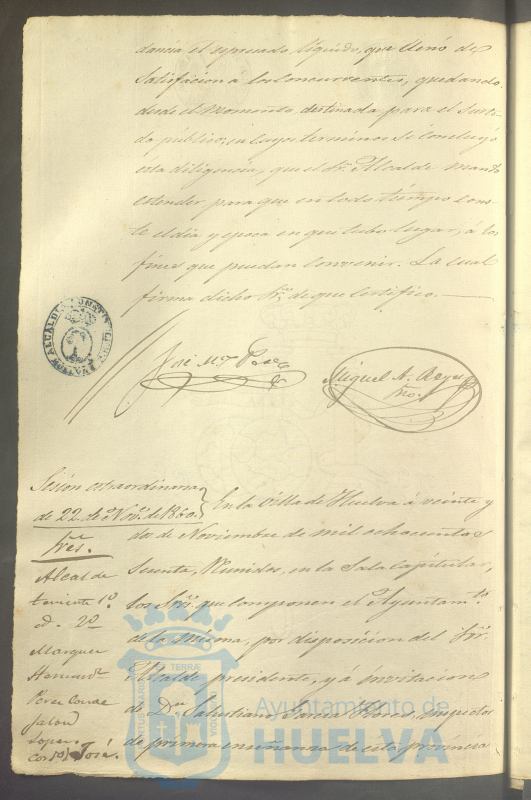 dancia el espresado líquido, que llenó de
satisfacion á los concurrentes, quedando
desde el momento destinada para el surti-
do público; en cuyos terminos se concluyó
esta diligencia, que el Sr. Alcalde mandó
estender para que en todo tiempo cons-
te el dia y epoca en que tubo lugar, á los
fines que puedan convenir. La cual
firma dicho Sr. de que certifico.
ALCALDIA CONSTITUCIONAL HUELVA
José Mª
Miguel A.
Sesion extraordinaria
de 22 de Nove. de 1860.
Sres.
Alcalde
teniente 1º
id. 2º
Marquez
Hernandz
Perez Conde
Jalon
Lopez
José
En la villa de Huelva á veinte y
dos de Noviembre de mil ochocientos
sesenta, Reunidos, en la Sala Capitular,
los Sres. que componen el Ayuntamto.
de la misma, por disposicion del Sr.
Alcalde presidente, y á invitacion
de Dn. Salustiano Garcia Blanco, inspector
de primera enseñanza de esta provincia
Ayuntamiento de
HUELVA